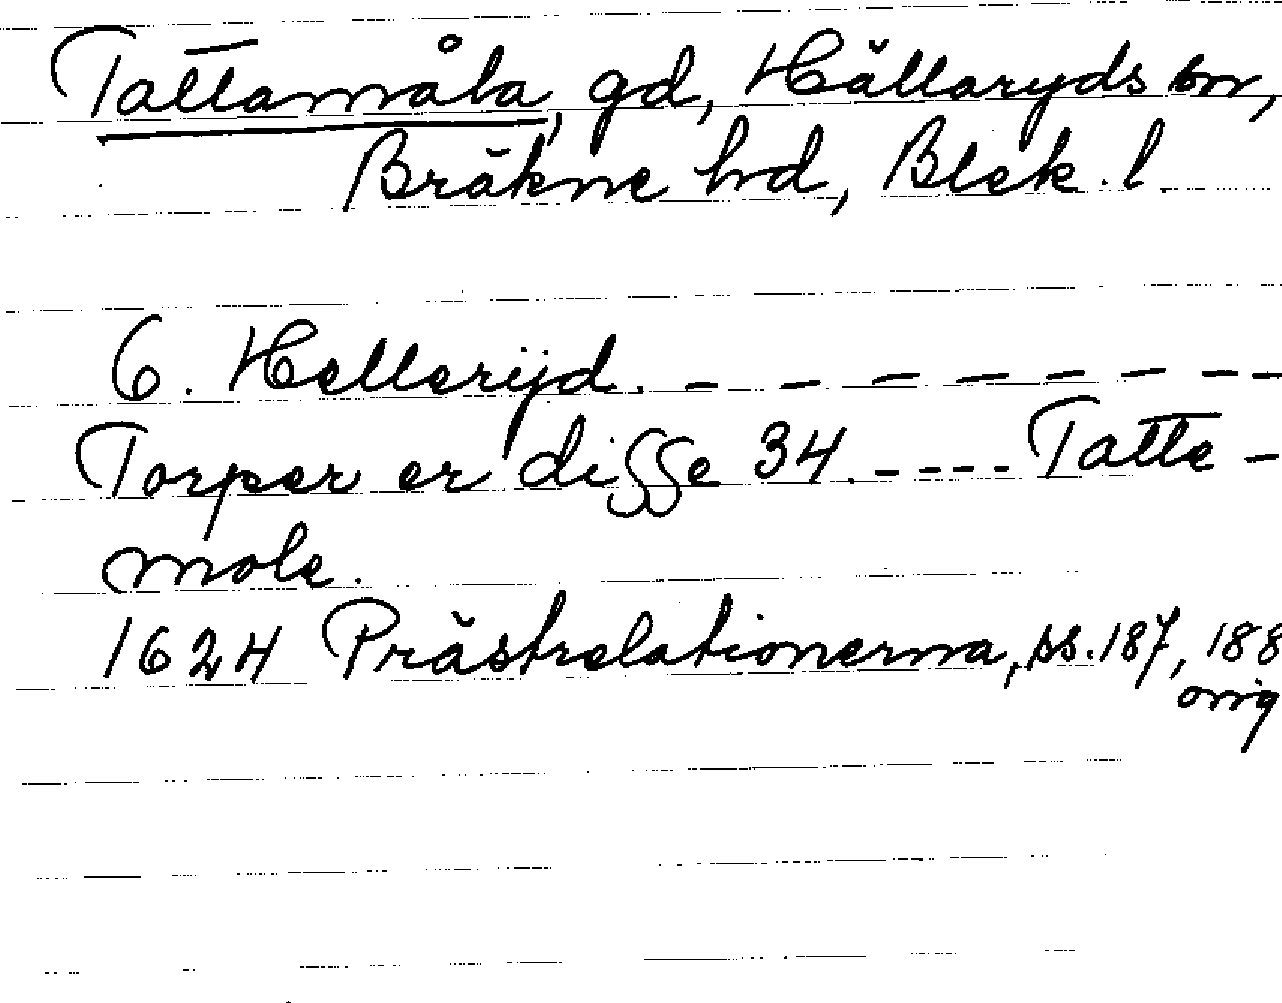 Tattamåla, gd, Hällaryds sn,
Bräkne hd, Blek. l.
6. Hellerijd. – – – – – – – –
Torper er disse 34. - - - - - Tatte -
mole.
1624 Prästrelationerna, ss. 187, 188
orig